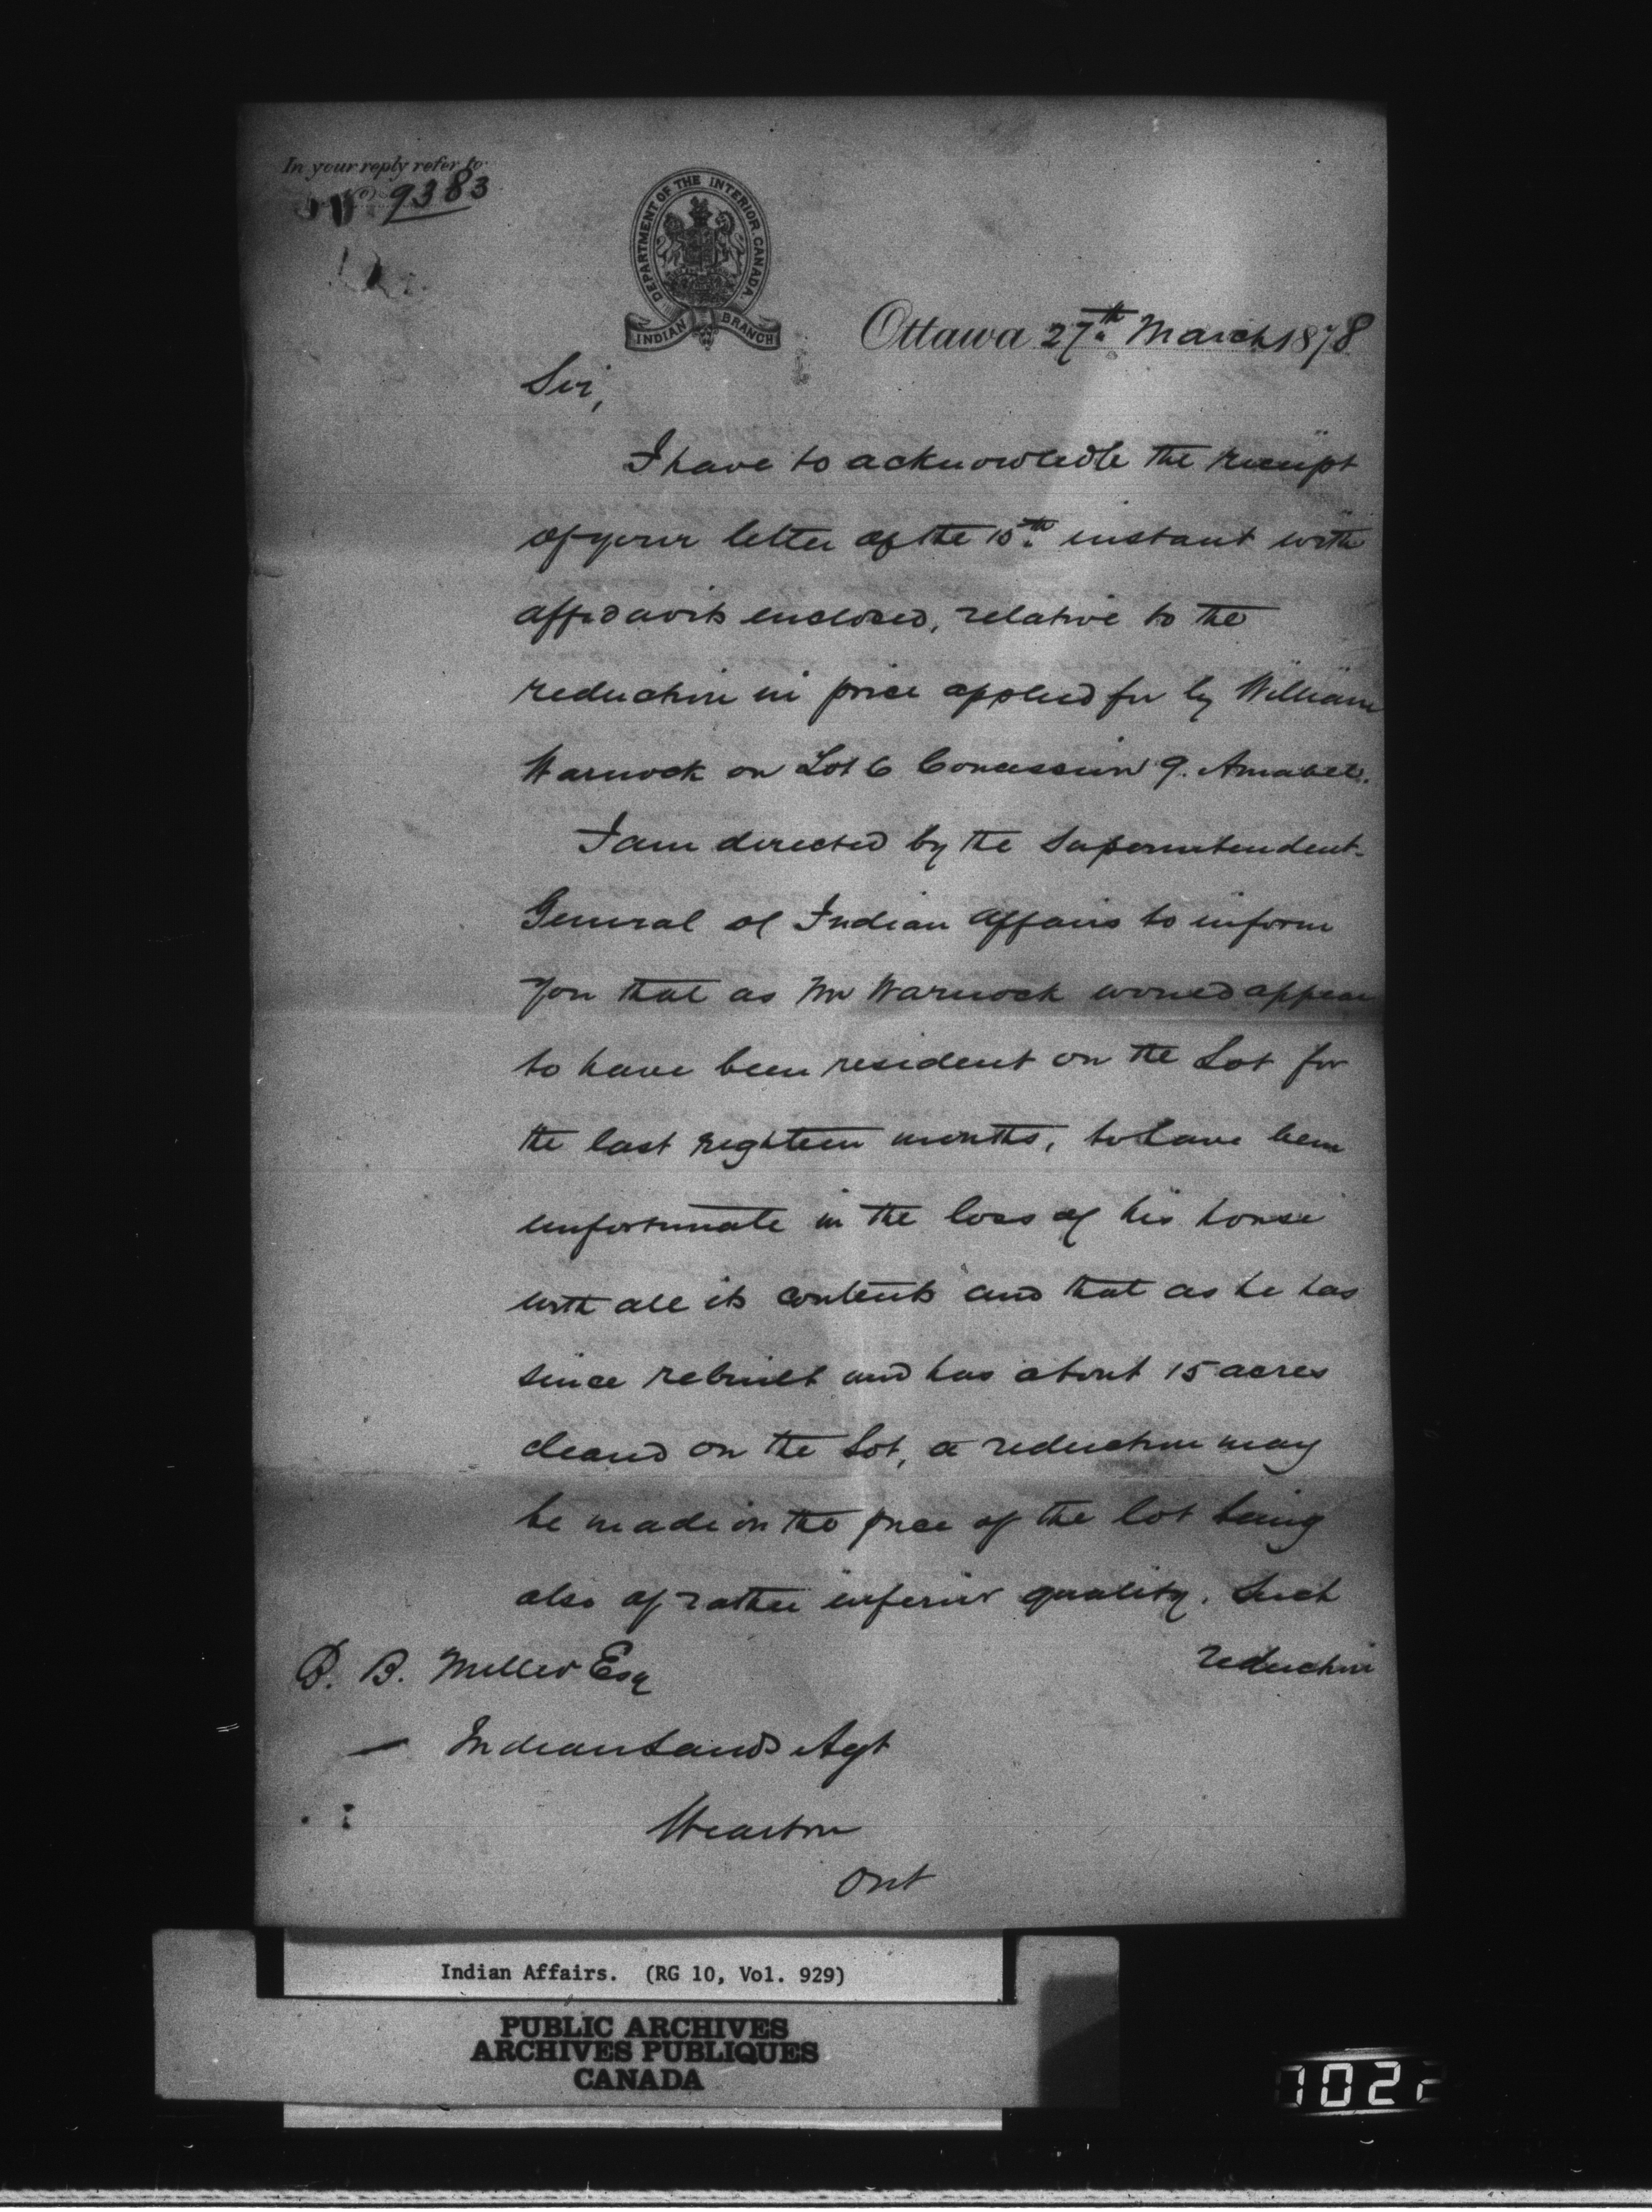 In your reply refer to
No 9383
DEPARTMENT OF THE INTERIOR. CANADA.
INDIAN BRANCH
Ottawa 27th March 1878
Sir,
I have to acknowledge the receipt
of your letter of the 15th instant with
affidavits enclosed, relative to the
reduction in price applied for by William
Warnock on Lot 6 Concession 9. Amabel.
I am directed by the Superintendent-
General of Indian Affairs to inform
you that as Mr Warnock would appear
to have been resident on the Lot for
the last eighteen months, to have been
unfortunate in the loss of his house
with all its contents and that as he has
since rebuilt and has about 15 acres
cleared on the Lot, a reduction may
be made in the price of the lot being
also of rather inferior quality. Such
reduction
B. B. Miller Esq
Indian Lands Agt
Wiarton
Ont
Indian Affairs. (RG 10, Vol. 929)
PUBLIC ARCHIVES
ARCHIVES PUBLIQUES
CANADA
1022